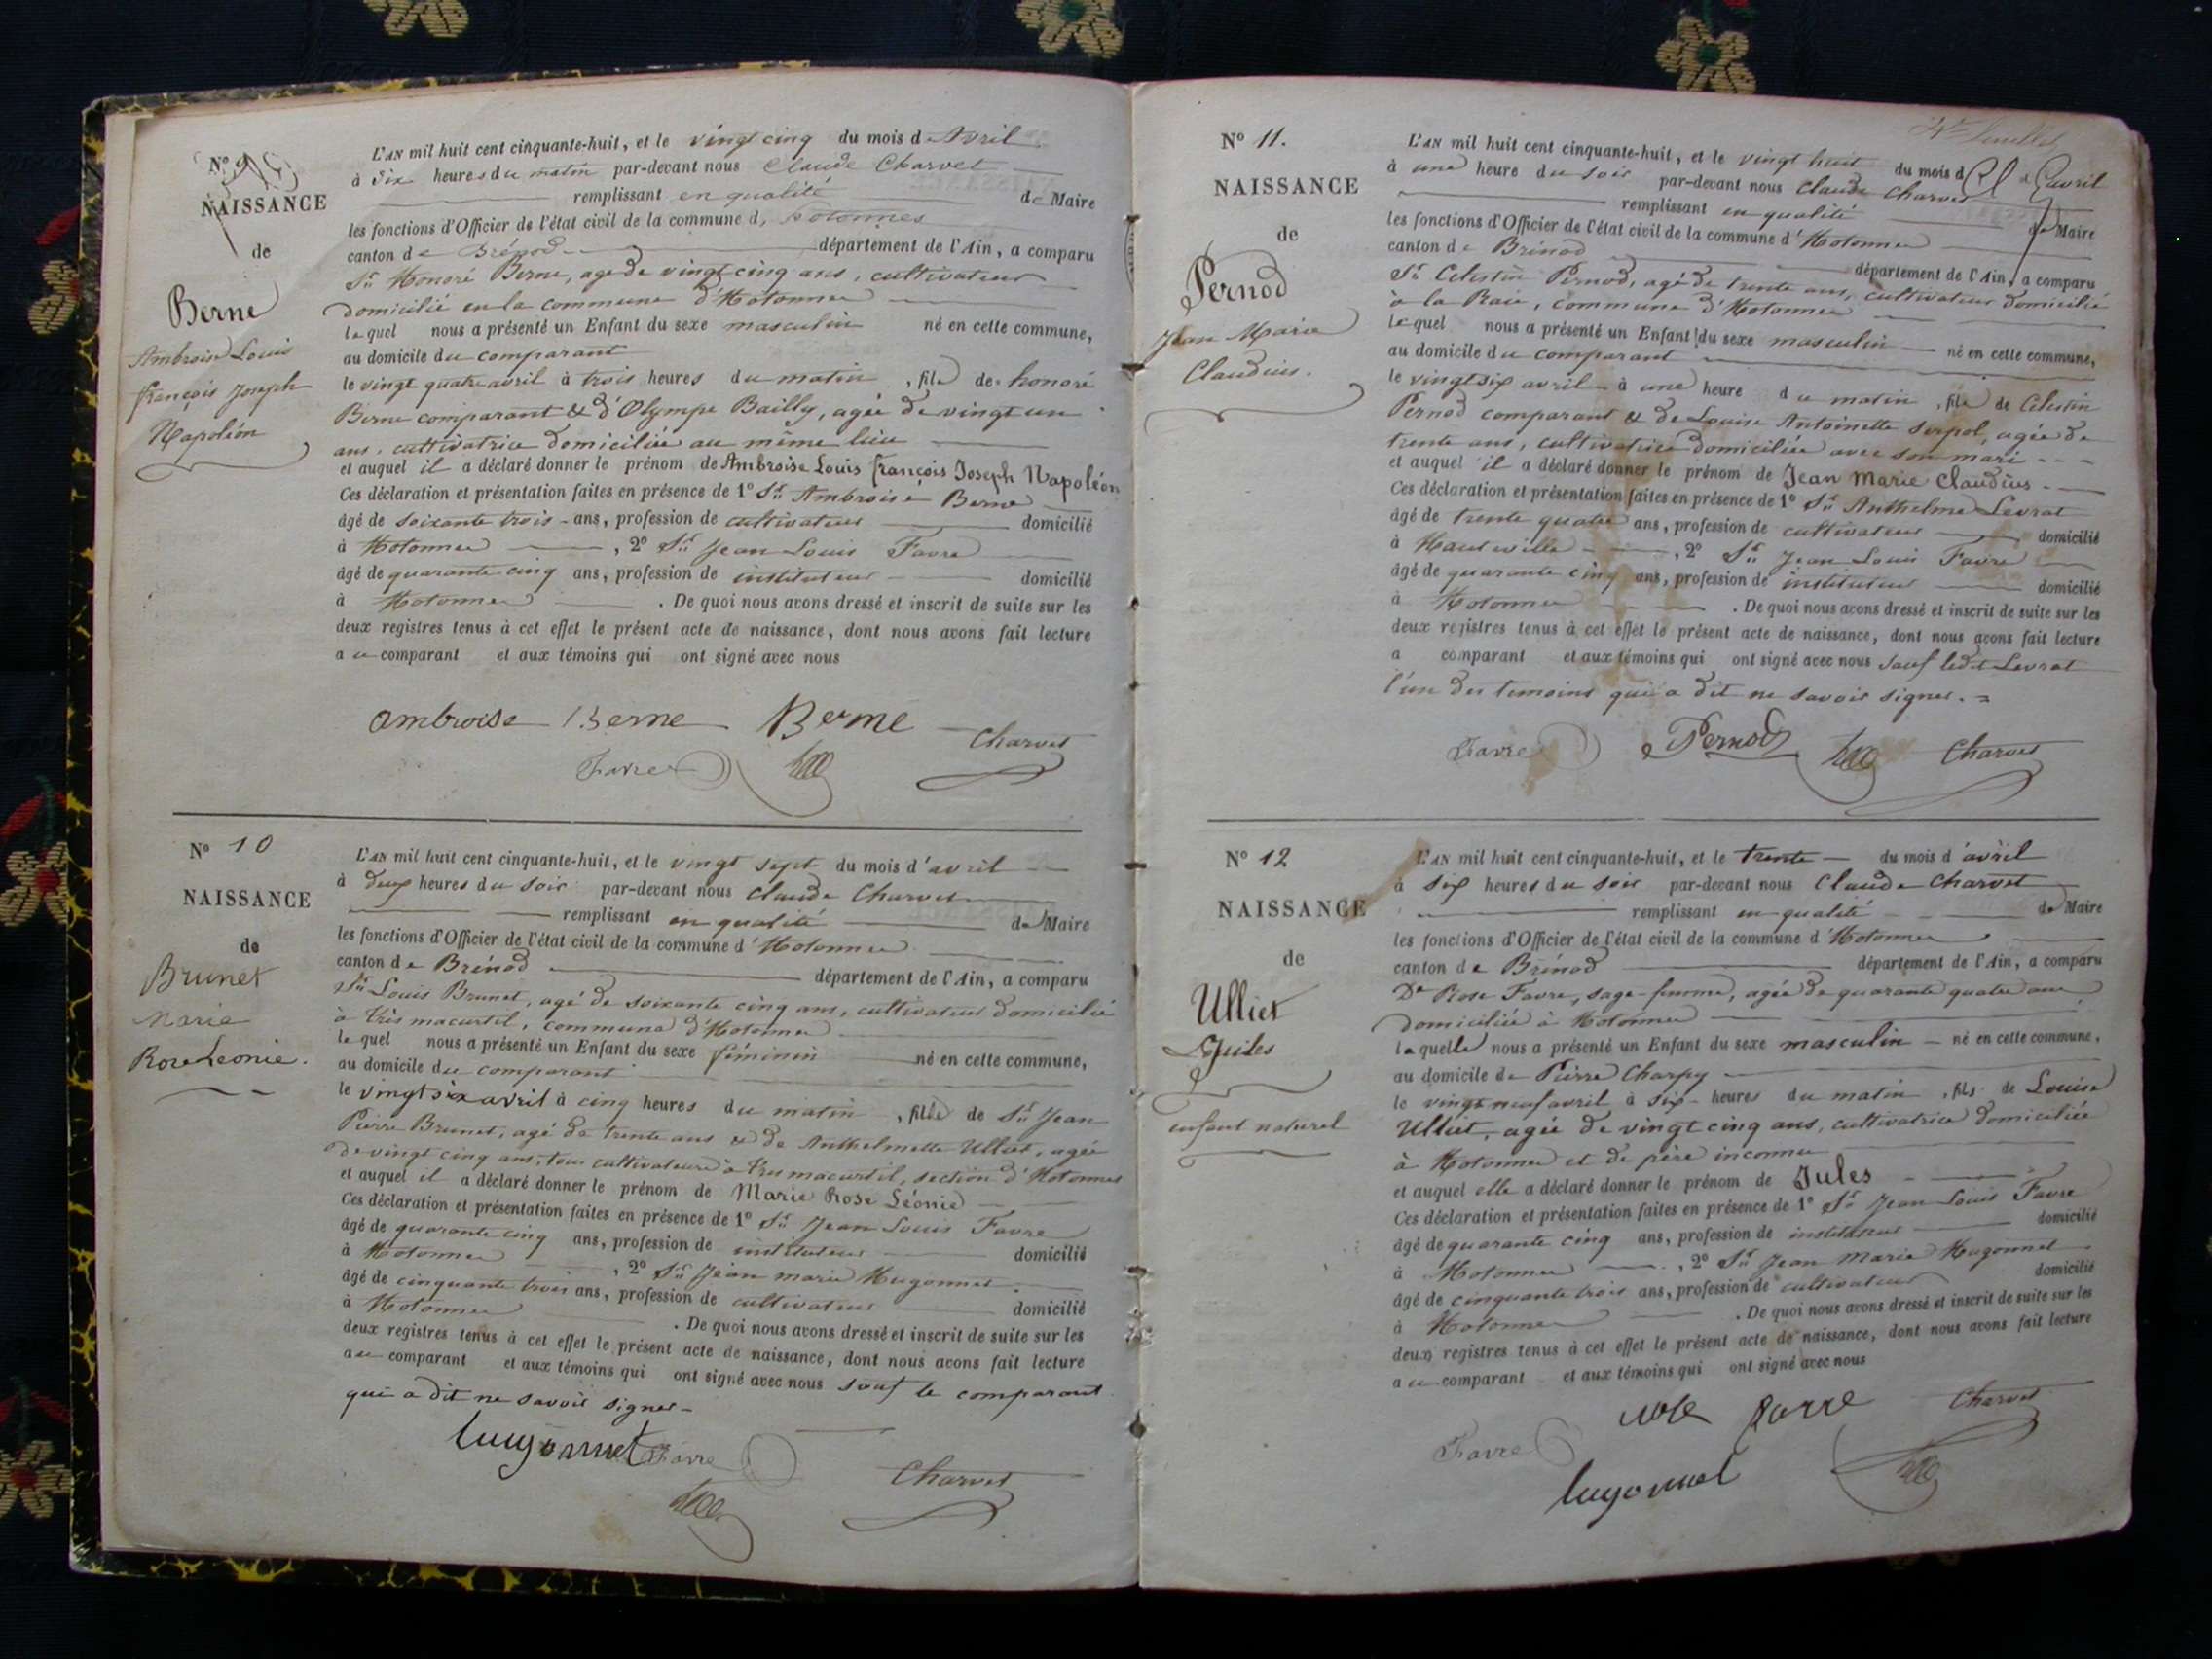 N° 9
NAISSANCE
de
Berne
Ambroise Louis
françois Joseph
Napoléon
L'AN mil huit cent cinquante-huit, et le vingt cinq du mois d Avril
à dix heures du matin par-devant nous Claude Charvet
remplissant en qualité de Maire
les fonctions d'Officier de l'état civil de la commune d, hotonnes
canton de Brénod département de l'Ain, a comparu
Sr. Honoré Berne, agé de vingt cinq ans, cultivateur
domicilié en la commune d'Hotonnes
lequel nous a présenté un Enfant du sexe masculin né en cette commune,
au domicile du comparant
le vingt quatre avril à trois heures du matin, fils de honoré
Berne comparant & d'Olympe Bailly, agée de vingt un
ans, cultivatrice domiciliée au même lieu
et auquel il a déclaré donner le prénom de Ambroise Louis françois Joseph Napoléon
Ces déclaration et présentation faites en présence de 1° Sr. Ambroise Berne
âgé de soixante trois ans, profession de cultivateur domicilié
à Hotonnes, 2° Sr. Jean Louis Favre
âgé de quarante cinq ans, profession de instituteur domicilié
à Hotonnes. De quoi nous avons dressé et inscrit de suite sur les
deux registres tenus à cet effet le présent acte de naissance, dont nous avons fait lecture
au comparant et aux témoins qui ont signé avec nous
ambroise Berne Berne Charvet
Favre
N° 10
NAISSANCE
de
Brunet
Marie
Rose Leonie.
L'AN mil huit cent cinquante-huit, et le vingt sept du mois d'avril
à deux heures du soir par-devant nous Claude Charvet
remplissant en qualité de Maire
les fonctions d'Officier de l'état civil de la commune d'Hotonnes
canton de Brénod département de l'Ain, a comparu
Sr. Louis Brunet, agé de soixante cinq ans, cultivateur domicilié
à très macurtil, commune d'Hotonnes
lequel nous a présenté un Enfant du sexe féminin né en cette commune,
au domicile du comparant
le vingt six avril à cinq heures du matin, fille de Sr. Jean
Pierre Brunet, agé de trente ans & de Anthelmette Ulliet, agée
de vingt cinq ans, tous cultivateurs à très macurtil, section d'Hotonnes
et auquel il a déclaré donner le prénom de Marie Rose Léonie
Ces déclaration et présentation faites en présence de 1° Sr. Jean Louis Favre
âgé de quarante cinq ans, profession de instituteur domicilié
à Hotonnes, 2° Sr. Jean marie Hugonnet
âgé de cinquante trois ans, profession de cultivateur domicilié
à Hotonnes. De quoi nous avons dressé et inscrit de suite sur les
deux registres tenus à cet effet le présent acte de naissance, dont nous avons fait lecture
au comparant et aux témoins qui ont signé avec nous sauf le comparant
qui a dit ne savoir signer
hugonnet Favre Charvet
N° 11.
NAISSANCE
de
Pernod
Jean Marie
Claudius.
L'AN mil huit cent cinquante-huit, et le vingt huit du mois d'avril
à une heure du soir par-devant nous Claude Charvet
remplissant en qualité de Maire
les fonctions d'Officier de l'état civil de la commune d'Hotonnes
canton de Brénod département de l'Ain, a comparu
Sr. Célestin Pernod, agé de trente ans, cultivateur domicilié
à la Raie, commune d'Hotonnes
lequel nous a présenté un Enfant du sexe masculin né en cette commune,
au domicile du comparant
le vingt six avril à une heure du matin, fils de Célestin
Pernod comparant & de Louise Antoinette Serpol, agée de
trente ans, cultivatrice domiciliée avec son mari
et auquel il a déclaré donner le prénom de Jean Marie Claudius
Ces déclaration et présentation faites en présence de 1° Sr. Anthelme Levrat
âgé de trente quatre ans, profession de cultivateur domicilié
à Hauteville, 2° Sr. Jean Louis Favre
âgé de quarante cinq ans, profession de instituteur domicilié
à Hotonnes. De quoi nous avons dressé et inscrit de suite sur les
deux registres tenus à cet effet le présent acte de naissance, dont nous avons fait lecture
a comparant et aux témoins qui ont signé avec nous sauf ledit Levrat
l'un des temoins qui a dit ne savoir signer. =
Favre Pernod Charvet
N° 12
NAISSANCE
de
Ulliet
Jules
enfant naturel
L'AN mil huit cent cinquante-huit, et le trente du mois d'avril
à six heures du soir par-devant nous Claude Charvet
remplissant en qualité de Maire
les fonctions d'Officier de l'état civil de la commune d'Hotonnes
canton de Brénod département de l'Ain, a comparu
De Rose Favre, sage-femme, agée de quarante quatre ans,
domiciliée à Hotonnes
laquelle nous a présenté un Enfant du sexe masculin né en cette commune,
au domicile de Pierre Charpy
le vingt neuf avril à six heures du matin, fils de Louise
Ulliet, agée de vingt cinq ans, cultivatrice domiciliée
à Hotonnes et de père inconnu
et auquel elle a déclaré donner le prénom de Jules
Ces déclaration et présentation faites en présence de 1° Sr. Jean Louis Favre
âgé de quarante cinq ans, profession de instituteur domicilié
à Hotonnes, 2° Sr. Jean Marie Hugonnet
âgé de cinquante trois ans, profession de cultivateur domicilié
à Hotonnes. De quoi nous avons dressé et inscrit de suite sur les
deux registres tenus à cet effet le présent acte de naissance, dont nous avons fait lecture
au comparant et aux témoins qui ont signé avec nous
rose favre Charvet
Favre
hugonnet